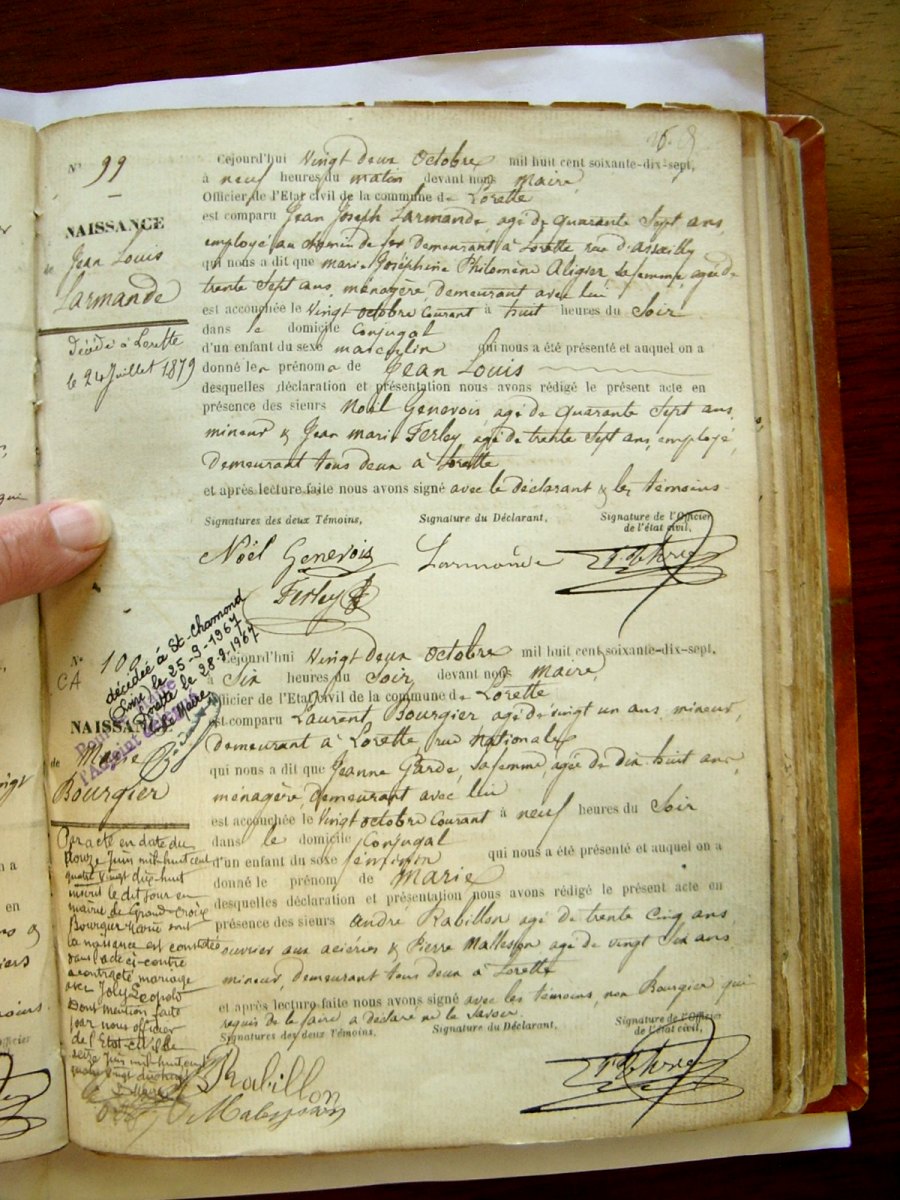 Nº 99
NAISSANCE
de Jean Louis
Larmande
Décédé à Lorette
le 24 Juillet 1879
Cejourd'hui Vingt deux Octobre mil huit cent soixante-dix-sept,
à neuf heures du matin devant nous Maire
Officier de l'Etat civil de la commune de Lorette
est comparu Jean Joseph Larmande, agé de quarante Sept ans,
employé au chemin de fer demeurant à Lorette rue d'Assailly
qui nous a dit que marie Joséphine Philomène Aligier, sa femme, agée de
trente Sept ans, ménagère, demeurant avec lui
est accouchée le Vingt octobre Courant à huit heures du Soir
dans le domicile Conjugal
d'un enfant du sexe masculin qui nous a été présenté et auquel on a
donné le prénom de Jean Louis
desquelles déclaration et présentation nous avons rédigé le présent acte en
présence des sieurs Noël Genevois, agé de quarante Sept ans,
mineur & Jean marie Ferley, agé de trente Sept ans, employé,
demeurant tous deux à Lorette
et après lecture faite nous avons signé avec le déclarant & les témoins
Signatures des deux Témoins, Signature du Déclarant, Signature de l'Officier
de l'état civil,
Noël Genevois Larmande
Ferley
Nº 100
CA
décédée à St-Chamond
(Loire) le 25-9-1967
Lorette le 28-9-1967
le Maire
NAISSANCE
de Marie
Bourgier
Par acte en date du
douze Juin mil huit cent
quatre vingt dix-huit
inscrit le dit jour en
mairie de Grand Croix
Bourgier Marie dont
la naissance est constatée
dans l'acte ci-contre
a contracté mariage
avec Joly Léopold
Dont mention faite
par nous officier
de l'Etat civil le
seize Juin mil huit cent
quatre vingt dix huit
Cejourd'hui Vingt deux Octobre mil huit cent soixante-dix-sept,
à Six heures du Soir, devant nous Maire,
Officier de l'Etat civil de la commune de Lorette
est comparu Laurent Bourgier agé de vingt un ans, mineur,
demeurant à Lorette, rue Nationale
qui nous a dit que Jeanne Garde, sa femme, agée de dix huit ans,
ménagère, demeurant avec lui
est accouchée le Vingt octobre Courant à neuf heures du Soir
dans le domicile Conjugal
d'un enfant du sexe féminin qui nous a été présenté et auquel on a
donné le prénom de Marie
desquelles déclaration et présentation nous avons rédigé le présent acte en
présence des sieurs André Rabillon agé de trente Cinq ans,
ouvrier aux aciéries & Pierre Mallesson agé de vingt Six ans
mineur, demeurant tous deux à Lorette
et après lecture faite nous avons signé avec les témoins, non Bourgier qui
requis de le faire a déclaré ne le Savoir
Signatures des deux Témoins, Signature du Déclarant, Signature de l'Officier
de l'état civil,
Rabillon